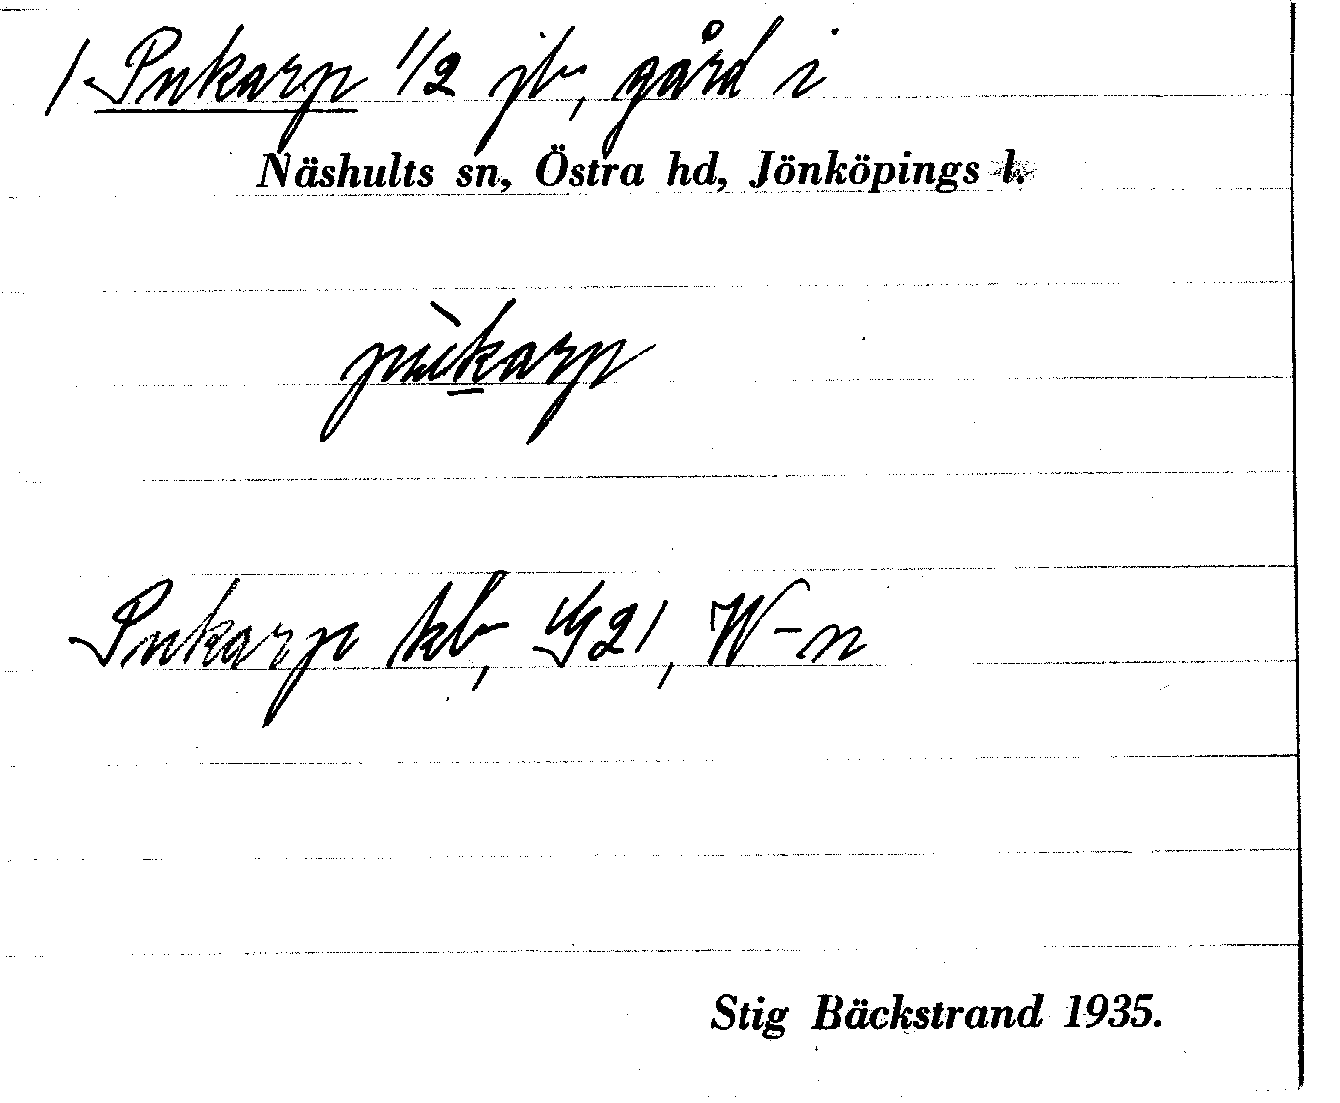 / Pukarp 1/2 jb, gård i
Näshults sn, Östra hd, Jönköpings l.
pùkarp
Pukarp kb, W-n
Stig Bäckstrand 1935.